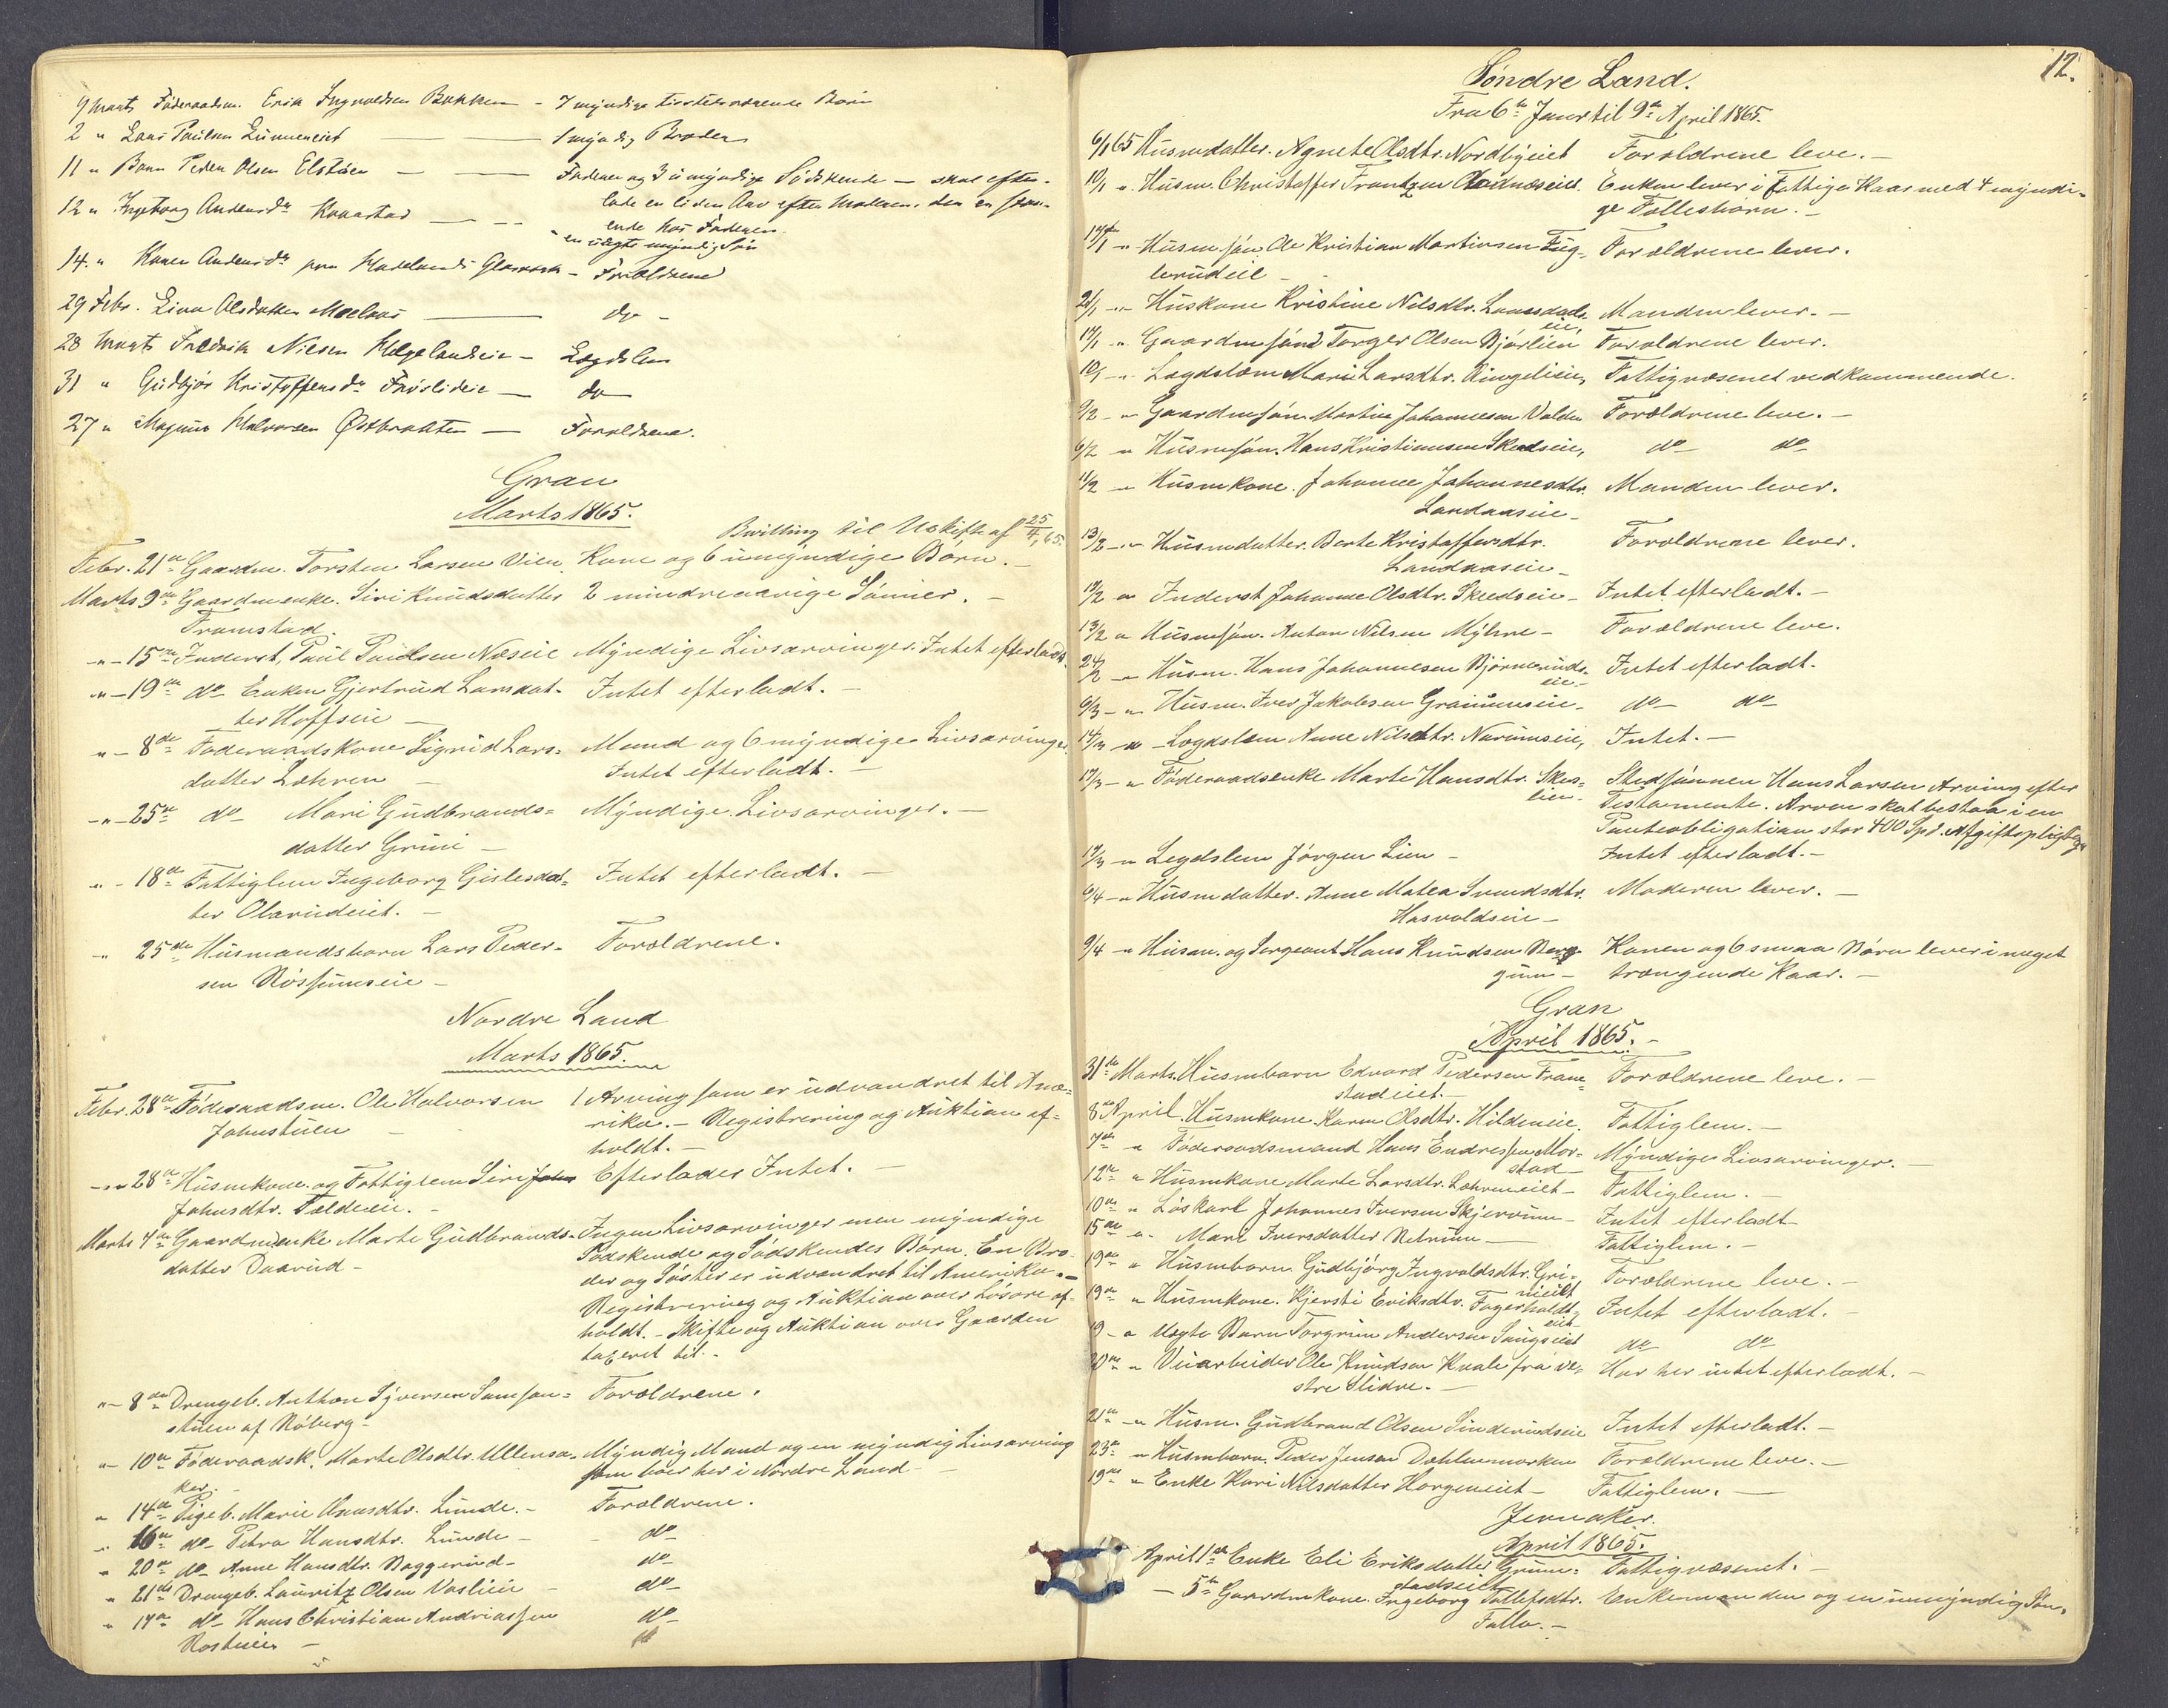 9 Marts Føderaadsm. Erik Ingvoldsen Bakken - 7 myndige tilstedeværende Børn
2 " Lars Paulsen Lunneneiet - 1 myndig Broder
11 " Barn Peder Olsen Elstøen - Faderen og 3 umyndige Sødskende - skal efter-
lade en liden Arv efter Moderen, den er staa-
ende hos Faderen
12 " Ingeborg Andersdr Kvarstad - en uægte myndig Søn
14. " Karen Andersdr paa Hadelands Glasværk - Forældrene
29 Febr. Lina Olsdatter Moelas - do -
28 Marts Fredrik Nilsen Helgelandseie - Lægdslem
31 " Gudbjør Kristoffersdr Frøslideie - do
27 " Magnus Halvorsen Østbraaten - Forældrene.
Gran
Marts 1865.
Bevilling til Uskifte af 25/4 65.
Febr. 21de Gaardm. Torsten Larsen Vien, Kone og 6 umyndige Børn. -
Marts 9de Gaardmenke. Siri Knudsdatter 2 mindreaarige Sønner. -
Framstad.
-"- 15de Inderst, Paul Paulsen Næseie Myndige Livsarvinger. Intet efterladt.
-"- 19de do Enken Gjertrud Larsdat- Intet efterladt. -
ter Hoffseie -
"- 8de Føderaadskone Sigrid Lars- Mand og 6 myndige Livsarvinger.
datter Løhren - Intet efterladt. -
-"- 25de do Mari Gudbrands- Myndige Livsarvinger. -
datter Grini -
"- 18de Fattiglem Ingeborg Gislesdat- Intet efterladt. -
ter Olerudeiet. -
" 25de Husmandsbarn Lars Peder- Forældrene.
sen Røssumseie -
Nordre Land
Marts 1865.
Febr. 28de Føderaadsm. Ole Halvorsen 1 Arving som er udvandret til Ame-
Johnstuen - rika. - Registrering og Auktion af-
holdt. -
-"- 28de Husmkone og Fattiglem Siri Efterlader Intet. -
Johnsdtr. Foldeie. -
Marts 4de Gaardmenke Marte Gudbrands- Ingen Livsarvinger men myndige
datter Daarud - Sødskende og Sødskendes Børn. En Bro-
der og Søster er udvandret til Amerika. -
Registrering og Auktion over Løsøre af-
holdt. - Skifte og Auktion over Gaarden
taxeret til. -
"- 8de Drengeb. Anthon Syversen Samson- Forældrene.
stuen af Røberg -
"- 10de Føderaadsk. Marte Olsdtr. Ullensa- Myndig Mand og en myndig Livsarving
ker. - som boer her i Nordre Land -
" 14de Pigeb. Marie Dunsdtr. Lunde. - Forældrene.
" 16de do Petra Hansdtr. Lunde - do
" 20de do Anne Hansdtr. Baggerud - do
" 21de Drengeb. Lauritz Olsen Vaslien - do
" 17de do Hans Christian Andreassen do
Rostuen -
12.
Søndre Land.
Fra 6te Janr til 9de April 1865.
6/1 65 Husmdatter. Agnete Olsdtr. Nordbyeiet Forældrene leve. -
10/1 " Husm. Christoffer Frantzen Enken lever i fattige Kaar med 4 myndi-
ge Fællesbørn. -
14/1 " Husm.søn. Ole Kristian Martinsen Fug- Forældrene lever.
lerudeie -
21/1 " Huskone Kristine Nilsdtr. Landsdals- Manden lever. -
eie,
14/1 " Gaardmsønd Torger Olsen Bjørlien Forældrene lever.
10/1 " Lægdslem Marie Larsdtr. Ringelieie, Fattigvæsenet vedkommende.
3/2 " Gaardmsøn. Martin Johannesen Valden Forældrene leve. -
6/2 " Husmsøn. Hans Kristiansen Skedseie, do do
11/2 " Husmkone. Johanne Johannesdtr. Manden lever.
Landaaseie -
13/2 " Husmdatter. Berte Kristoffersdtr. Forældrene lever.
Landaaseie -
12/2 " Inderst Johanne Olsdtr. Skedseie - Intet efterladt. -
13/2 " Husmsøn. Anton Nilsen Myhre - Forældrene leve.
24/2 " Husm. Hans Johannesen Bjørnerud- Intet efterladt.
eie -
6/3 " Husm. Iver Jakobsen Granumseie - do do
14/3 " Lægdslem Anne Nilsdtr. Narumseie, Intet. -
17/3 " Føderaadsenke Marte Hansdtr. Skes- Stedsønnen Hans Larsen Arving efter
lien - Testamente. Arven skal bestaa i en
Panteobligation stor 400 Spd. Afgiftspligtig
17/3 " Legdslem Jørgen Lien - Intet efterladt. -
6/4 " Husmdatter. Anne Matea Svendsdtr. Moderen lever. -
Hasvoldseie -
9/4 " Husm. og Sergeant Hans Knudsen Berg Konen og 6 smaa Børn lever i meget
gum - trængende Kaar. -
Gran
April 1865. -
31de Marts. Husmbarn Edvard Pedersen Fram- Forældrene leve. -
stadeiet. -
8de April. Husmkone Karen Olsdtr. Hildeneie. Fattiglem. -
7de " Føderaadsmand Hans Endresen Mor- Myndige Livsarvinger. -
stad -
12te " Husmkone Marte Larsdtr. Løhreneiet - Fattiglem. -
10de " Løskarl Johannes Iversen Skjervum - Intet efterladt -
15de " Mari Iversdatter Netrum - Fattiglem. -
19de " Husmbarn Gudbjørg Ingvoldsdtr. Gri- Forældrene leve. -
nieiet
19de " Husmkone. Kjersti Eriksdtr. Fagerholdt- Intet efterladt. -
eiet
19 - " Uægte Barn Torgrim Andersen Saugseiet do do
20de " Veiarbeider Ole Knudsen Kvale fra ve- Har her intet efterladt. -
stre Slidre. -
21de " Husm. Gudbrand Olsen Sinderudseie Intet efterladt. -
23de " Husmbarn. Peder Jensen Dahlenmarken Forældrene leve. -
19de " Enke Kari Nilsdatter Horgeneiet - Fattiglem. -
Jevnaker.
April 1865.
April 1de Enke Eli Eriksdatter Grim- Fattigvæsenet. -
stadseiet
- 5te Gaardmkone. Ingeborg Tollefsdtr. Enkemanden og en umyndig Søn.
Falla. -